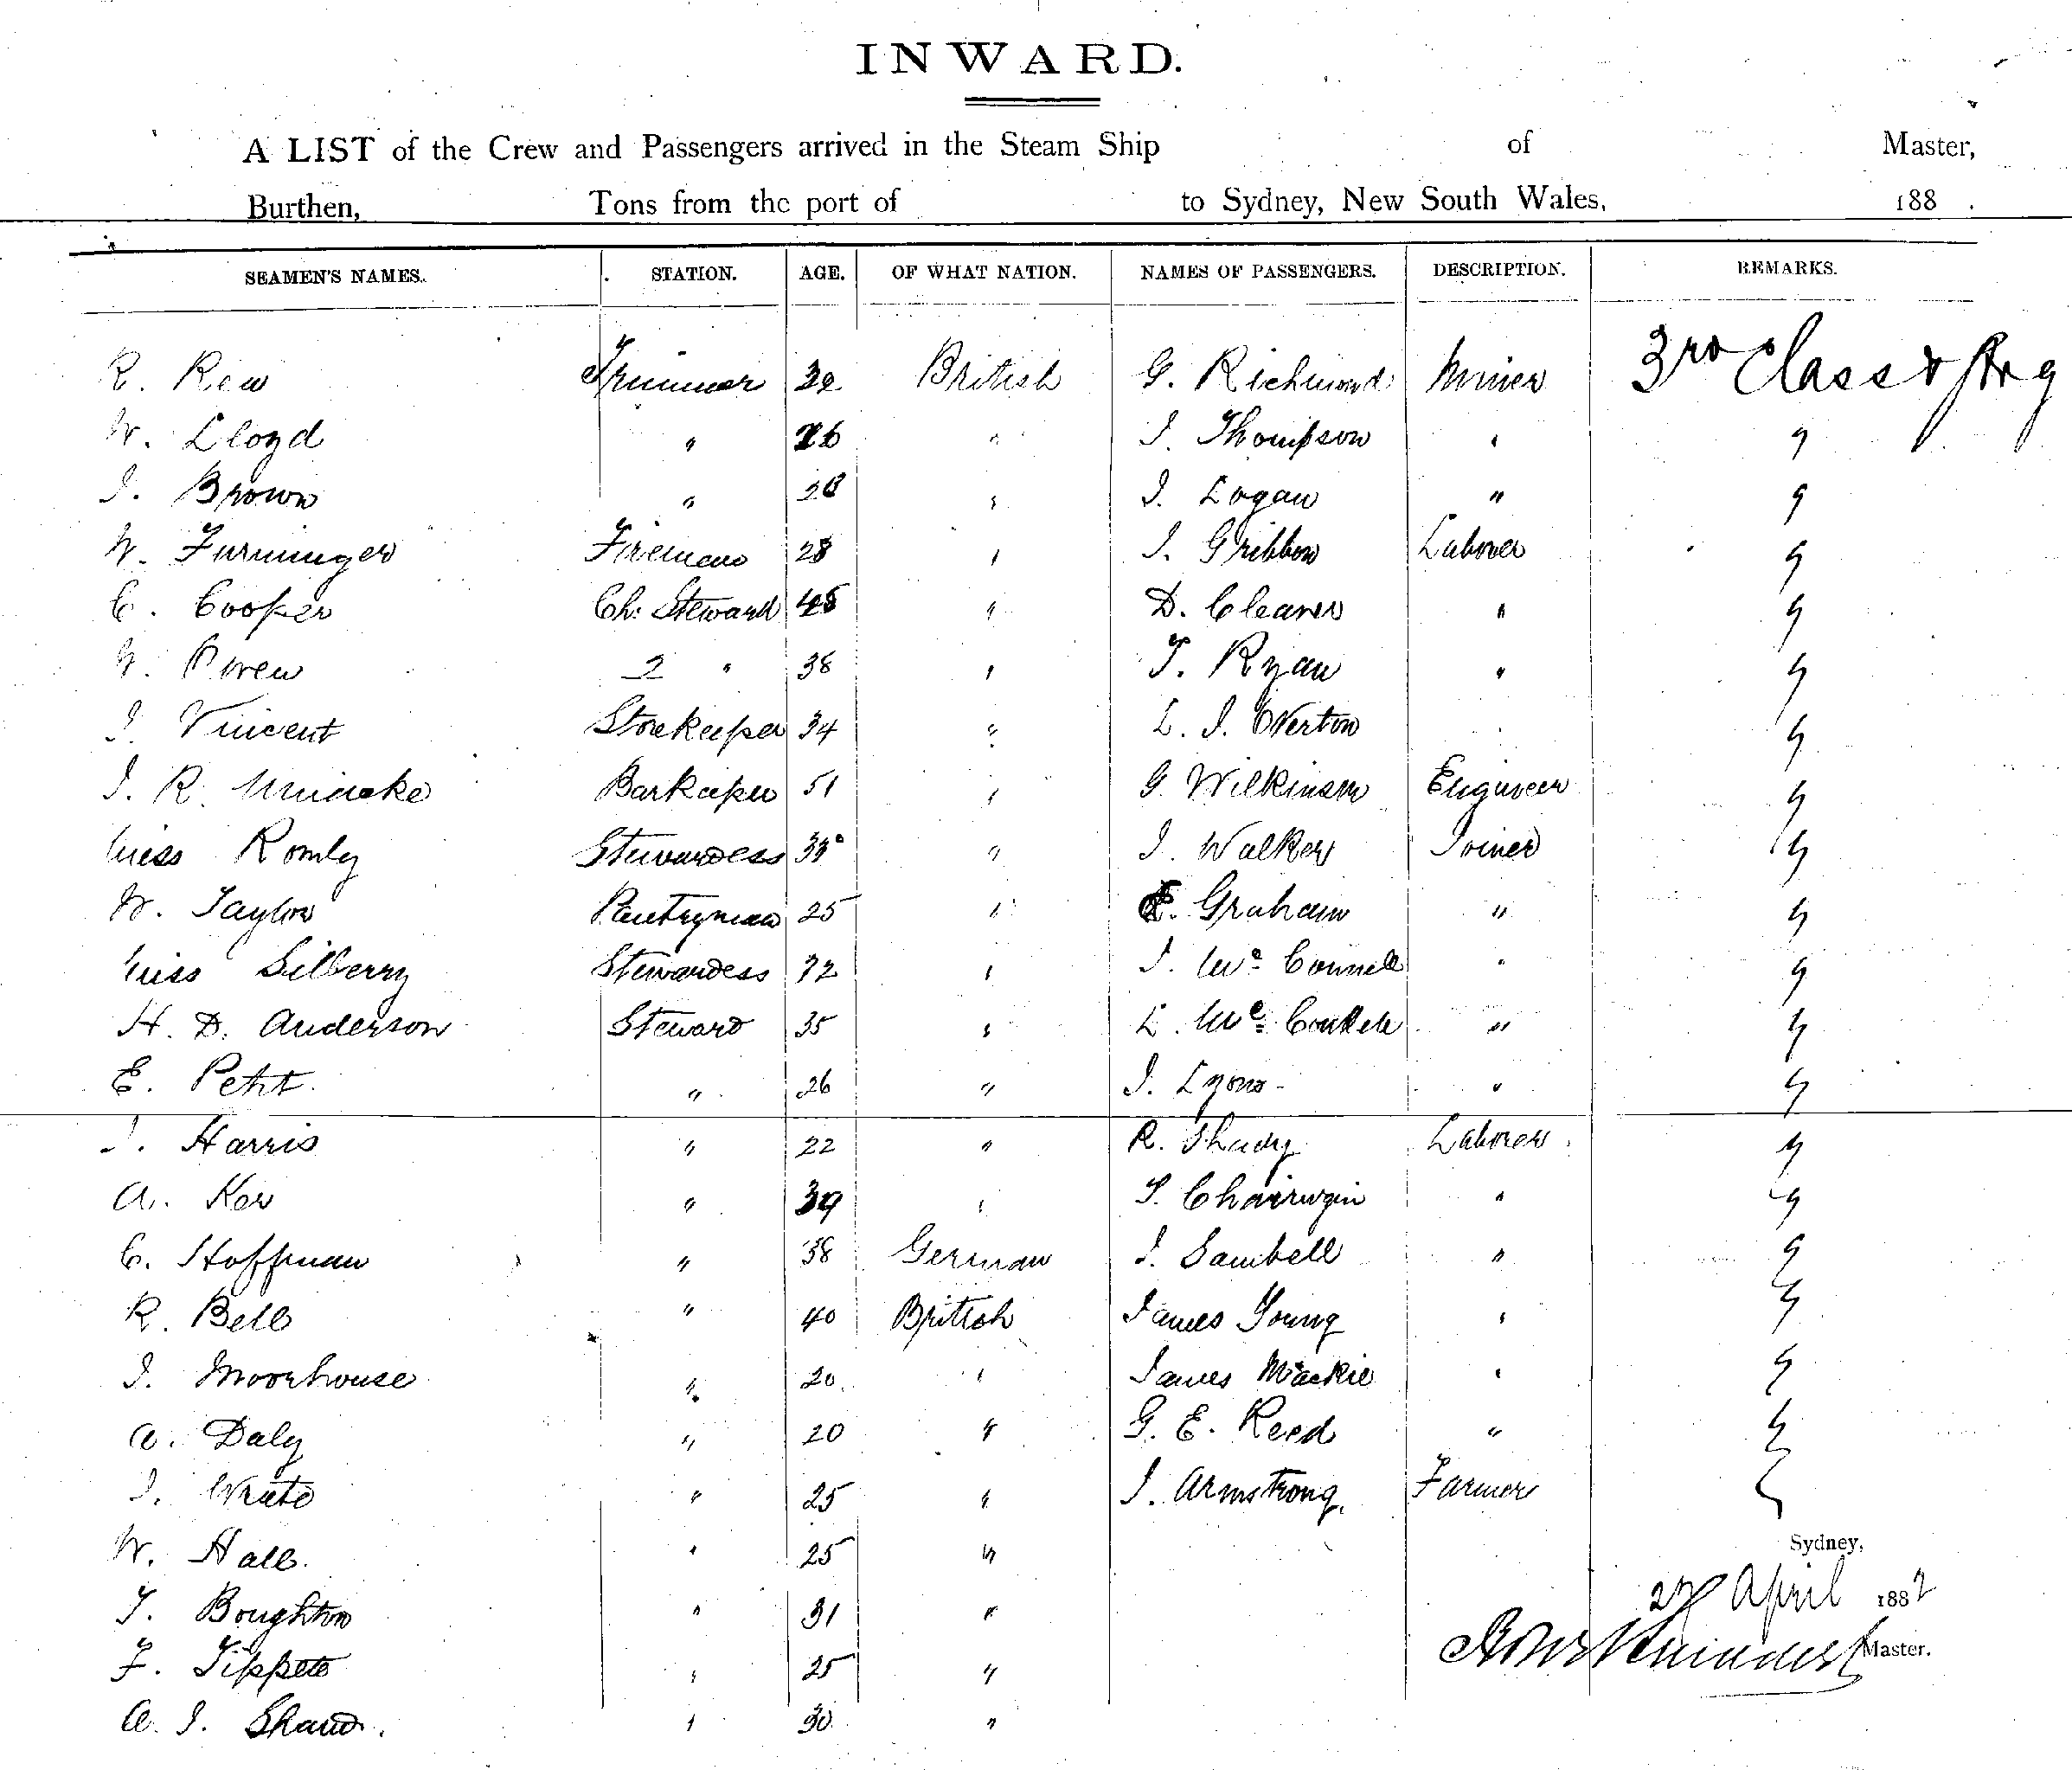 INWARD.
A LIST of the Crew and Passengers arrived in the Steam Ship of Master,
Burthen, Tons from the port of to Sydney, New South Wales, 188 .
SEAMEN'S NAMES. STATION. AGE. OF WHAT NATION. NAMES OF PASSENGERS. DESCRIPTION. REMARKS.
R. Rew Trimmer British G. Richmond Miner 3rd Class
W. Lloyd " 26 " J. Thompson "
J. Brown " 28 " J. Logan "
W. Furminger Fireman 28 " J. Gribbon Laborer "
C. Cooper Ch: Steward 45 " D. Cleaver "
2 " 38 " T. Ryan "
J. Vincent Storekeeper 34 " L. J. Overton
J. R. Barkeeper 51 " G Wilkinson Engineer "
Miss Romly Stewardess " J. Walker Joiner "
W. Taylor Pantryman 25 " Graham "
Miss Silberry Stewardess 32 " J. Mc Connell "
H. D. Anderson Steward 35 " L. Mc "
E. Pett " 26 " J. Lyons "
Harris " 22 " R. Laborer "
A. Ker " 39 " "
C. Hoffman " 38 German J. Sambell "
R. Bell " 40 British James Young "
J. Moorhouse " 20 " James Mackie "
A. Daly " 20 " G. E. Reed "
J. " 25 " J. Armstrong Farmer
W. Hall " 25 "
T. Boughton " 31 "
F. Tippett " 25 "
A. J. Shand. " 30 "
Sydney,
27 April 1882
Master.